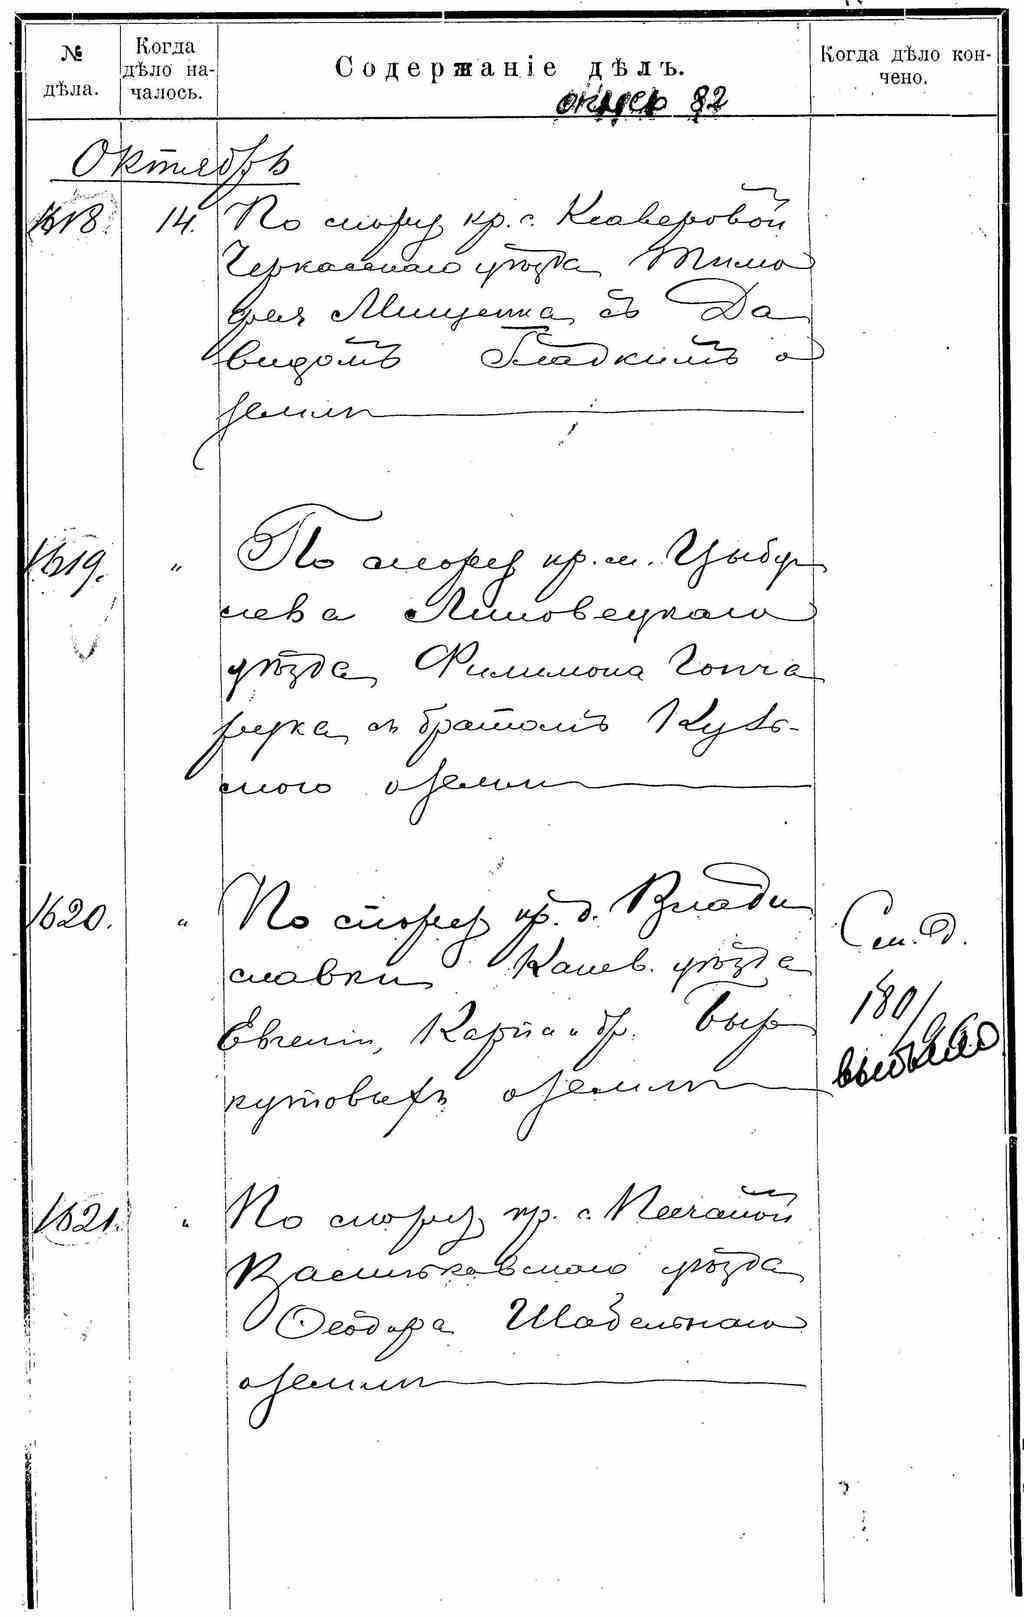 № дѣла.
Когда дѣло началось.
Содержаніе дѣлъ.
Когда дѣло кончено.
82
Октябрь
1618. 14. По спору кр. с. Клаверовой
Черкасскаго уѣзда Тимо
фея Мищенка съ Да
видомъ Гладкимъ о
землѣ
1619. " По спору кр. м. Цыбу
лева Липовецкаго
уѣзда Филимона Гонча
рука съ братомъ Кузь-
мою о землѣ
1620. " По спору кр. д. Влади
славки Канев. уѣзда
Евгенія, Карпа и др.
кутовыхъ о землѣ
См. д.
180/
1621. " По спору кр. с. Песчаной
Васильковскаго уѣзда
Ѳеодора Шабельнаго
о землѣ